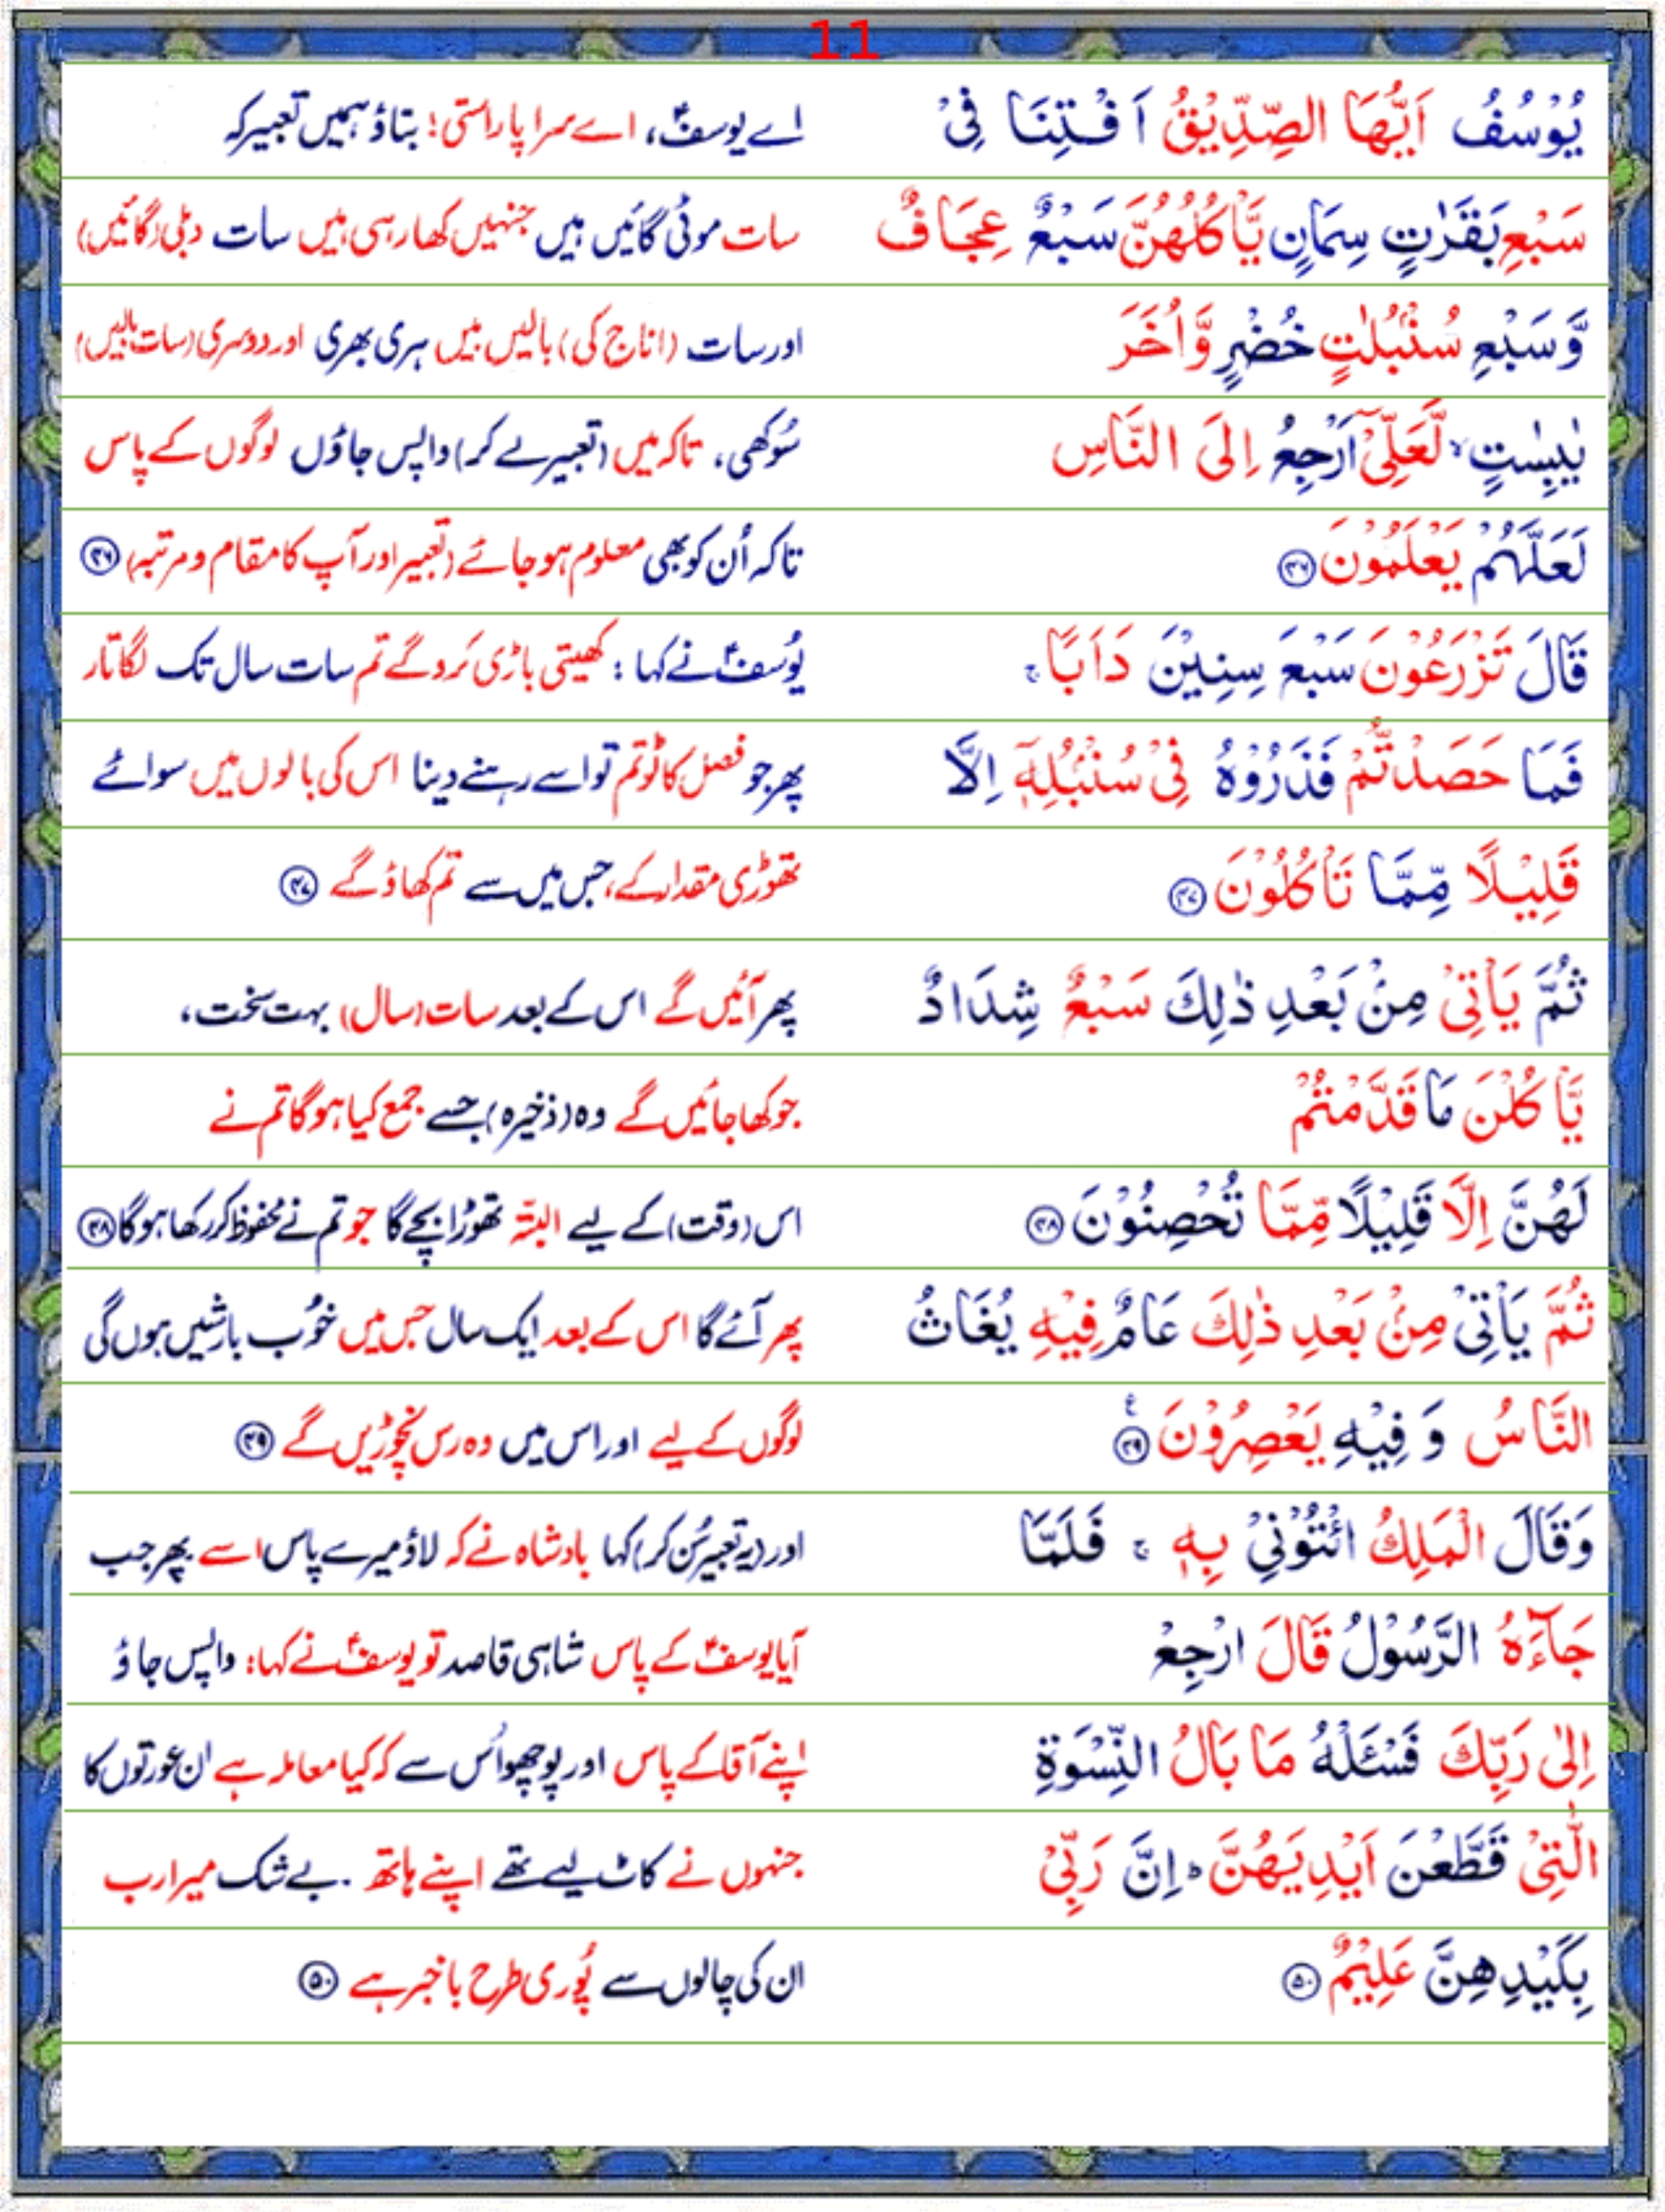 11
يُوْسُفُ اَيُّهَا الصِّدِّيْقُ اَفْتِنَا فِىْ اے یوسفؑ، اے سراپا راستی! بتاؤ ہمیں تعبیر کہ
سَبْعِ بَقَرٰتٍ سِمَانٍ يَّاْكُلُهُنَّ سَبْعٌ عِجَافٌ سات موٹی گائیں ہیں جنہیں کھا رہی ہیں سات دبلی (گائیں)
وَّسَبْعِ سُنْۢبُلٰتٍ خُضْرٍ وَّاُخَرَ اور سات (اناج کی) بالیں ہیں ہری بھری اور دوسری (سات بالیں)
يٰبِسٰتٍ ۙ لَّعَلِّىْٓ اَرْجِعُ اِلَى النَّاسِ سُوکھی، تاکہ میں (تعبیر لے کر) واپس جاؤں لوگوں کے پاس
لَعَلَّهُمْ يَعْلَمُوْنَ ۝۴۶ تاکہ اُن کو بھی معلوم ہو جائے (تعبیر اور آپ کا مقام و مرتبہ) ۝۴۶
قَالَ تَزْرَعُوْنَ سَبْعَ سِنِيْنَ دَاَبًا ۚ یُوسفؑ نے کہا : کھیتی باڑی کرو گے تم سات سال تک لگاتار
فَمَا حَصَدْتُّمْ فَذَرُوْهُ فِىْ سُنْۢبُلِهٖٓ اِلَّا پھر جو فصل کاٹو تم تو اسے رہنے دینا اس کی بالوں میں سوائے
قَلِيْلًا مِّمَّا تَاْكُلُوْنَ ۝۴۷ تھوڑی مقدار کے، جس میں سے تم کھاؤ گے ۝۴۷
ثُمَّ يَاْتِىْ مِنْۢ بَعْدِ ذٰلِكَ سَبْعٌ شِدَادٌ پھر آئیں گے اس کے بعد سات (سال) بہت سخت،
يَّاْكُلْنَ مَا قَدَّمْتُمْ جو کھا جائیں گے وہ (ذخیرہ) جسے جمع کیا ہوگا تم نے
لَهُنَّ اِلَّا قَلِيْلًا مِّمَّا تُحْصِنُوْنَ ۝۴۸ اس (وقت) کے لیے البتّہ تھوڑا بچے گا جو تم نے محفوظ کر رکھا ہوگا ۝۴۸
ثُمَّ يَاْتِىْ مِنْۢ بَعْدِ ذٰلِكَ عَامٌ فِيْهِ يُغَاثُ پھر آئے گا اس کے بعد ایک سال جس میں خوُب بارشیں ہوں گی
النَّاسُ وَ فِيْهِ يَعْصِرُوْنَ ۝۴۹ ع لوگوں کے لیے اور اس میں وہ رس نچوڑیں گے ۝۴۹
وَقَالَ الْمَلِكُ ائْتُوْنِىْ بِهٖ ۚ فَلَمَّا اور (یہ تعبیر سُن کر) کہا بادشاہ نے کہ لاؤ میرے پاس اسے پھر جب
جَآءَهُ الرَّسُوْلُ قَالَ ارْجِعْ آیا یوسفؑ کے پاس شاہی قاصد تو یوسفؑ نے کہا: واپس جاؤ
اِلٰى رَبِّكَ فَسْـَٔلْهُ مَا بَالُ النِّسْوَةِ اپنے آقا کے پاس اور پوچھو اُس سے کہ کیا معاملہ ہے ان عورتوں کا
الّٰتِىْ قَطَّعْنَ اَيْدِيَهُنَّ ؕ اِنَّ رَبِّىْ جنہوں نے کاٹ لیے تھے اپنے ہاتھ . بے شک میرا رب
بِكَيْدِهِنَّ عَلِيْمٌ ۝۵۰ ان کی چالوں سے پُوری طرح باخبر ہے ۝۵۰